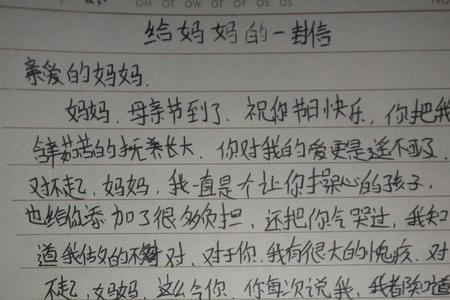 给妈妈的一封信
亲爱的妈妈.
妈妈.母亲节到了.祝你节日快乐,你把我
含辛茹苦的抚养长大.你对我的爱更是遥不可及.
对不起,妈妈,我一直是个让你操心的孩子,
也给你添加了很多负担,还把你气哭过,我知
道我做的不对,对于你.我有很大的愧疚.对
不起,妈妈.这么令你,你每次说我,我都